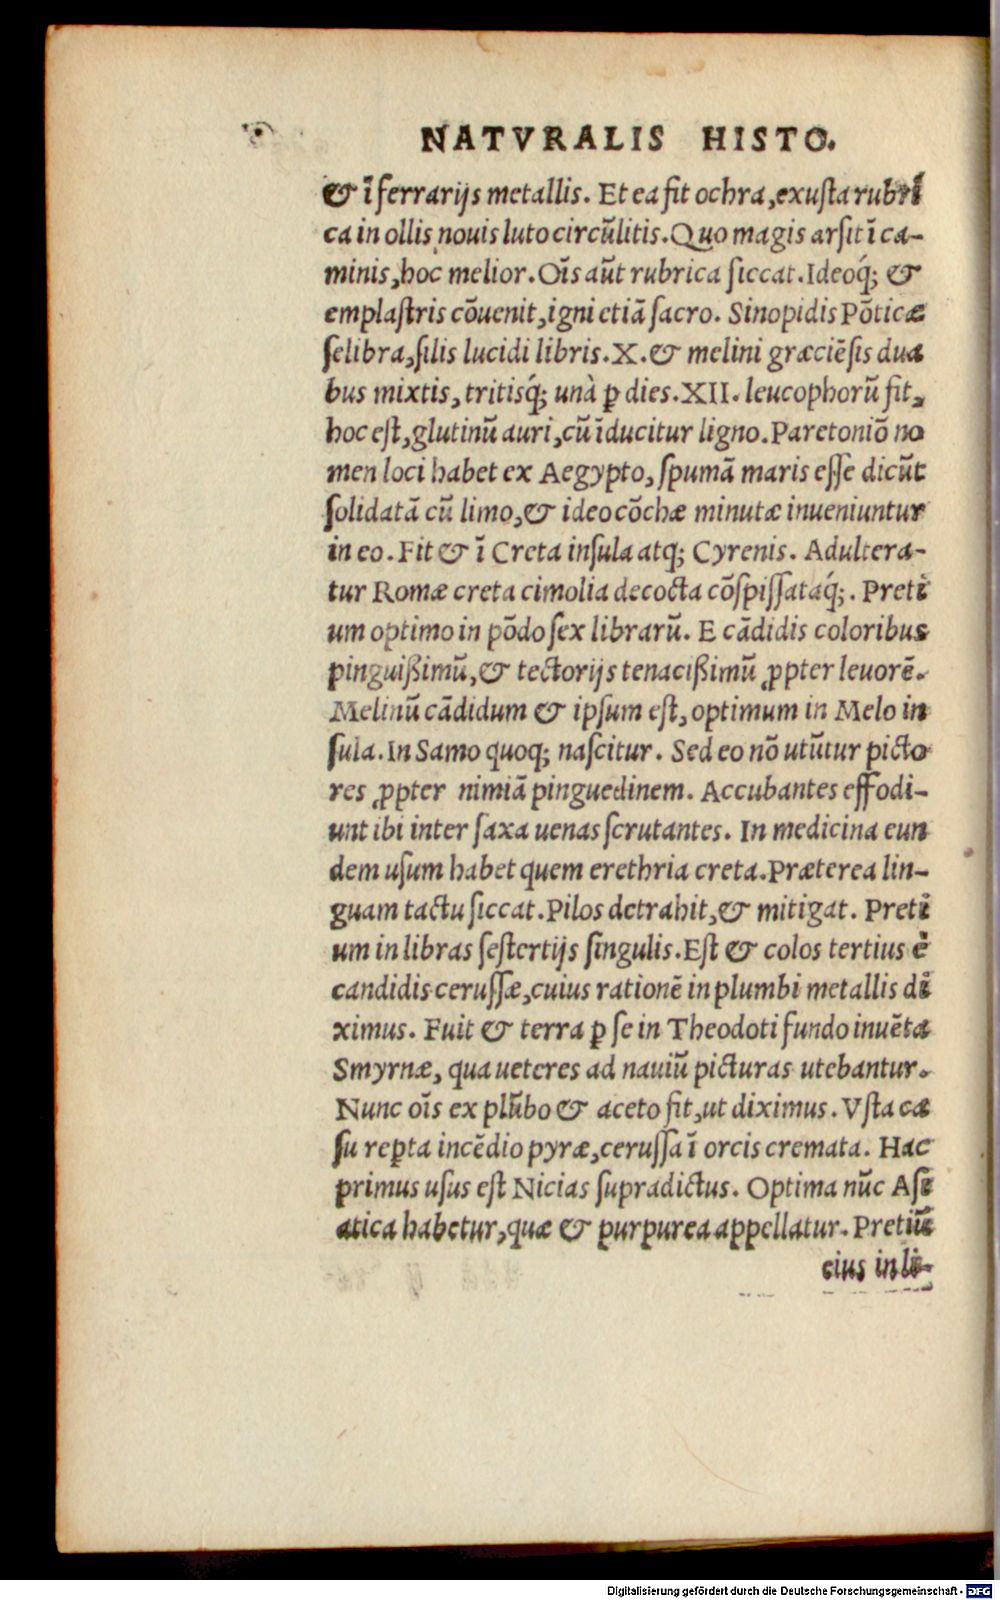 NATVRALIS HISTO.
& ī ferrarijs metallis. Et ea fit ochra, exusta rubri
ca in ollis nouis luto circūlitis. Quo magis arsit ī ca-
minis, hoc melior. Oīs aūt rubrica siccat. Ideoq́; &
emplastris cōuenit, igni etiā sacro. Sinopidis Pōticæ
selibra, silis lucidi libris. X. & melini græciēsis dua
bus mixtis, tritisq́; unà ꝑ dies. XII. leucophorū fit,
hoc est, glutinū auri, cū īducitur ligno. Paretoniō no
men loci habet ex Aegypto, spumā maris esse dicūt
solidatā cū limo, & ideo cōchæ minutæ inueniuntur
in eo. Fit & ī Creta insula atq; Cyrenis. Adultera-
tur Romæ creta cimolia decocta cōspissataq́;. Preti
um optimo in pōdo sex librarū. E cādidis coloribus
pinguißimū, & tectorijs tenacißimū ꝓpter leuorē.
Melinū cādidum & ipsum est, optimum in Melo in
sula. In Samo quoq; nascitur. Sed eo nō utūtur picto
res ꝓpter nimiā pinguedinem. Accubantes effodi-
unt ibi inter saxa uenas scrutantes. In medicina eun
dem usum habet quem erethria creta. Præterea lin-
guam tactu siccat. Pilos detrahit, & mitigat. Preti
um in libras sestertijs singulis. Est & colos tertius ē
candidis cerussæ, cuius rationē in plumbi metallis di
ximus. Fuit & terra ꝑ se in Theodoti fundo inuēta
Smyrnæ, qua ueteres ad nauiū picturas utebantur.
Nunc oīs ex plūbo & aceto fit, ut diximus. Vsta ca
su reꝑta incēdio pyræ, cerussa ī orcis cremata. Hac
primus usus est Nicias supradictus. Optima nūc Asi
atica habetur, quæ & purpurea appellatur. Pretiū
eius in li-
Digitalisierung gefördert durch die Deutsche Forschungsgemeinschaft - DFG